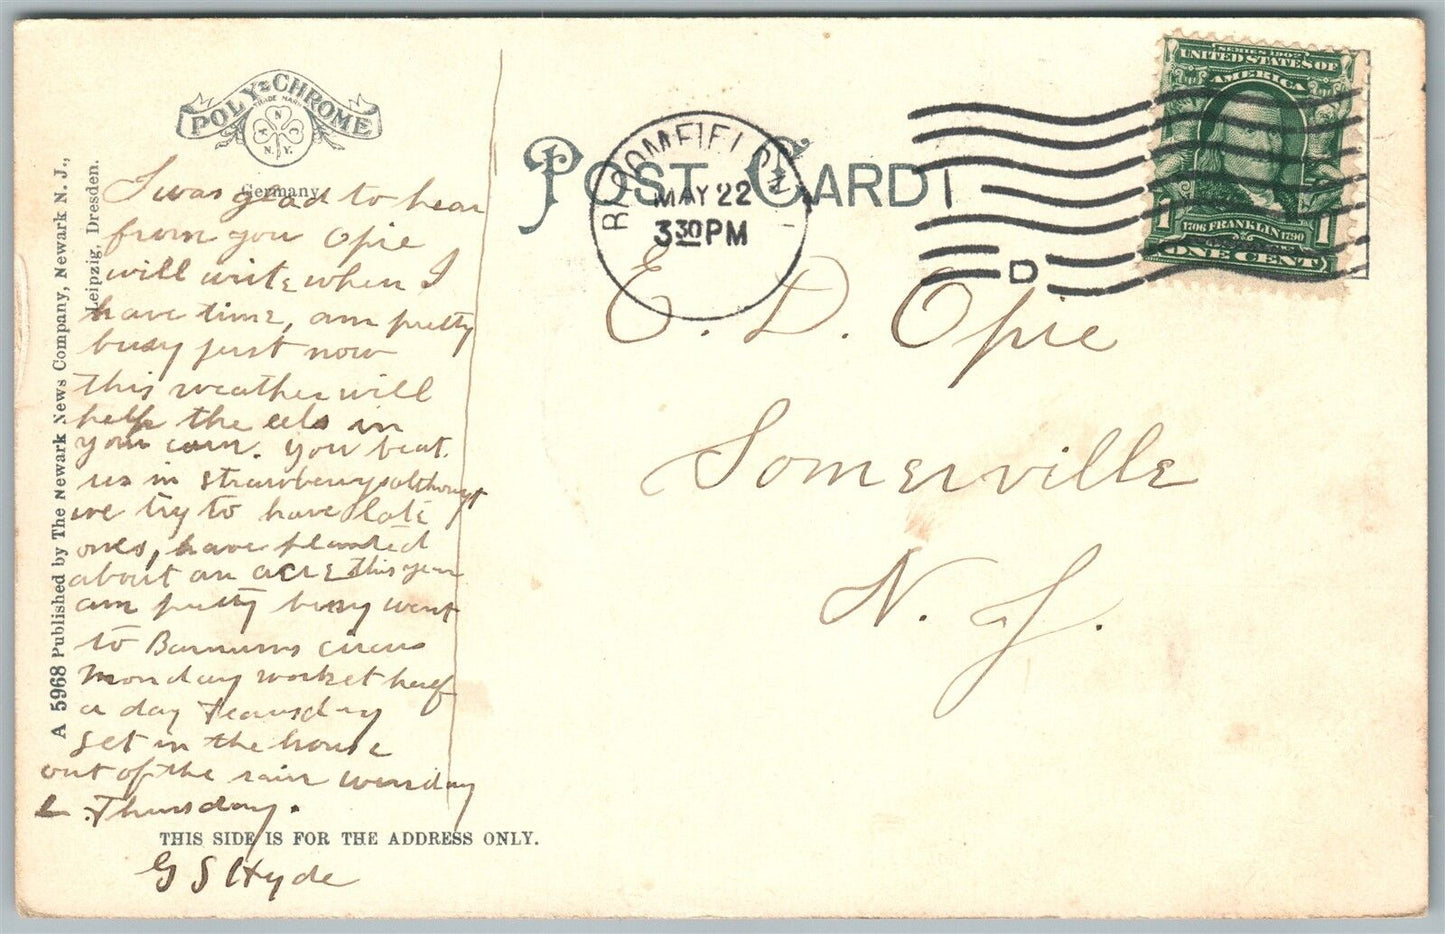 POLY-CHROME
TRADE MARK
A N C
N.Y.
Germany
A 5968 Published by The Newark News Company, Newark N. J.,
Leipzig, Dresden.
I was glad to hear
from you Opie
will write when I
have time, am pretty
busy just now
this weather will
help the eels in
your corn. you beat
us in strawberrys although
we try to have late
ones, have planted
about an acre this year
am pretty busy went
to Barnums circus
Monday worket half
a day Teausday
set in the house
out of the rain wensday
& Thursday.
THIS SIDE IS FOR THE ADDRESS ONLY.
G S Hyde
POST CARD
BLOOMFIELD N. J.
MAY 22
3 30 PM
D
SERIES 1902
UNITED STATES OF
AMERICA
1706 FRANKLIN 1790
1 1
ONE CENT
E. D. Opie
Somerville
N. J.